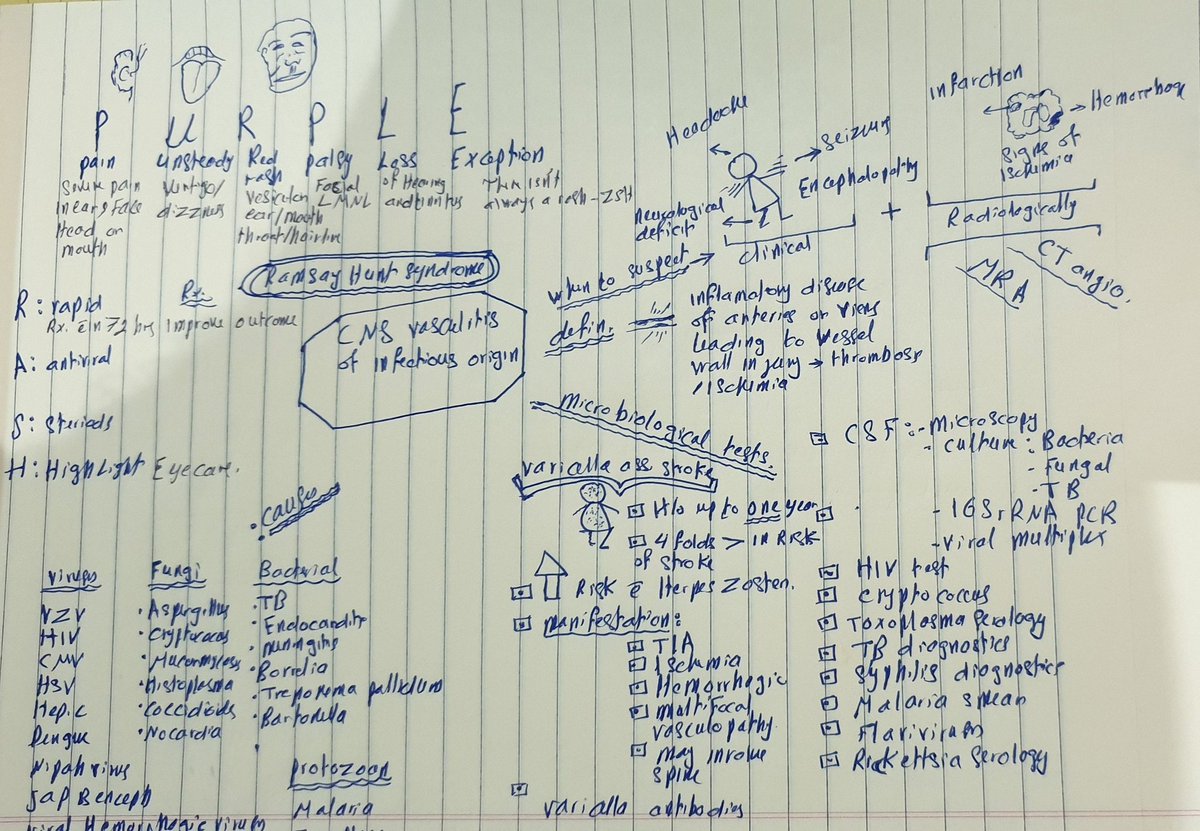 P U R P L E
pain unsteady Red rash palsy Loss Exception
Severe pain in ear, Face Head or mouth
Vertigo/ dizziness
Vesicular ear/mouth throat/hairline
Facial LMNL
of Hearing and tinnitus
This isn't always a rash - ZSH
Ramsay Hunt syndrome
Rx.
R: rapid
Rx. in 72 hrs Improve outcome
A: antiviral
S: steriods
H: HighLight Eyecare.
CNS vasculitis
of infectious origin
Headache
Seizure
Encephalopathy
neurological
deficit
clinical
+
infarction
Hemorrhage
signs of
ischimia
Radiologically
MRA
CT angio.
when to suspect
defin.
inflamatory disease
of arteries or viens
leading to vessel
wall injury → thrombosis
/ischimia
microbiological tests.
varialla ass stroke
H/o up to one year
4 folds > in Risk
of stroke
Risk Herpes Zoster.
manifestation:
TIA
Ischimia
Hemorrhagic
multifocal
vasculopathy
may involve
spine
varialla antibodies
CSF: - Microscopy
- culture: Bacteria
- Fungal
- TB
- 16S rRNA PCR
- viral multiplex
HIV test
cryptococcus
Toxoplasma serology
TB diagnostics
Syphilis diagnostics
Malaria smear
Flavivirus
Rickettsia serology
. causes
viruses
VZV
HIV
CMV
HSV
Hep.c
Dengue
Nipah virus
Jap Benceph
viral Hemorrhagic virus
Fungi
. Aspergillus
. Cryptococcus
. Mucormycosis
. Histoplasma
. Coccidioids
. Nocardia
Bacterial
. TB
. Endocarditis
. miningitis
. Borrelia
. Treponema pallidum
. Bartonella
protozoon
Malaria